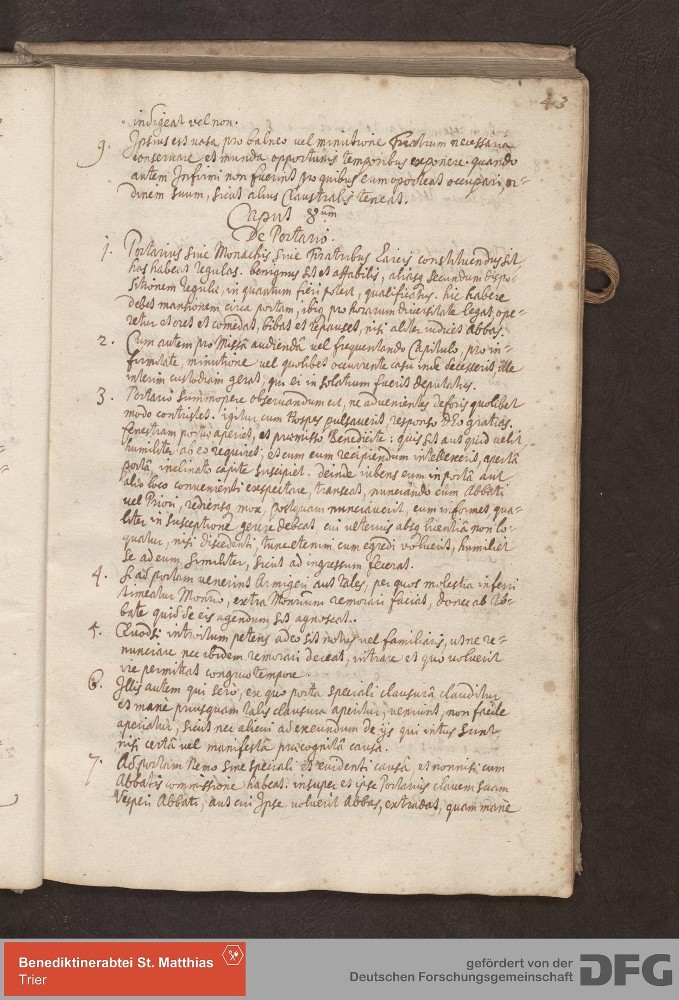 43
indigeat vel non.
9. Ipsius est vasa pro balneo vel minutione Fratrum necessaria
conservare et munda opportunis temporibus exponere. quando
autem Infirmi non fuerint pro quibus eum oporteat occupari, or-
dinem suum, sicut alius Claustralis teneat.
Caput 8um
De Portario.
1. Portarius sive Monachis sive Fratribus Laicis constituendus sit
has habeat regulas. benignus sit et affabilis, aliasq secundum dispo-
sitionem regulae, in quantum fieri potest, qualificatus. hic habere
debet mansionem circa portam, ibiq pro horarum diversitate legat, ope-
retur et oret et comedat, bibat et repauset, nisi aliter iudicet Abbas.
2. Cum autem pro Missâ audiendâ vel frequentando Capitulo, pro in-
firmitate, minutione vel quolibet occurrente casu inde decesserit, ille
interim custodiam gerat, qui ei in solatium fuerit deputatus.
3. Portario summopere observandum est, ne advenientes deforis quolibet
modo contristet. igitur cum Hospes pulsaverit, responso Deo gratias.
fenestram portae aperiet, et praemisso Benedicite: quis sit aut quid velit
humiliter ab eo requiret; et cum eum recipiendum intellexerit, apertâ
portâ, inclinato capite suscipiet. deinde iubens eum in portâ aut
alio loco convenienti exspectare, transeat, nunciando eum Abbati
vel Priori, rediensq mox, postquam nunciaverit, eum informet qua-
liter in susceptione gerere debeat. cui ulterius absq licentiâ non lo-
quatur, nisi discedenti, tunc etenim cum egredi voluerit, humiliet
se ad eum similiter, sicut ad ingressum fecerat.
4. Si ad portam venerint Armigeri aut tales, per quos molestia inferri
timeatur Monrio, extra Monrium remorari faciat, donec ab Ab-
bate quid de eis agendum sit agnoscat.
5. Quodsi introitum petens adeo sit notus vel familiaris, ut ne re-
nunciare nec ibidem remorari deceat, intrare et quo voluerit
ire permittat congruo tempore.
6. Illis autem qui sero, ex quo porta speciali clausurâ clauditur
et manè priusquam talis clausura aperitur, veniunt, non facile
aperiatur, sicut nec alicui ad exeundum de ijs qui intus sunt
nisi certâ vel manifestâ praecognitâ causâ.
7. Ad portam Nemo sine speciali et evidenti causâ, et nonnisi cum
Abbatis commissione habeat. insuper et ipse Portarius clavem suam
Vesperi Abbati, aut cui Ipse voluerit Abbas, extradat, quam manè
Benediktinerabtei St. Matthias
Trier
gefördert von der
Deutschen Forschungsgemeinschaft
DFG